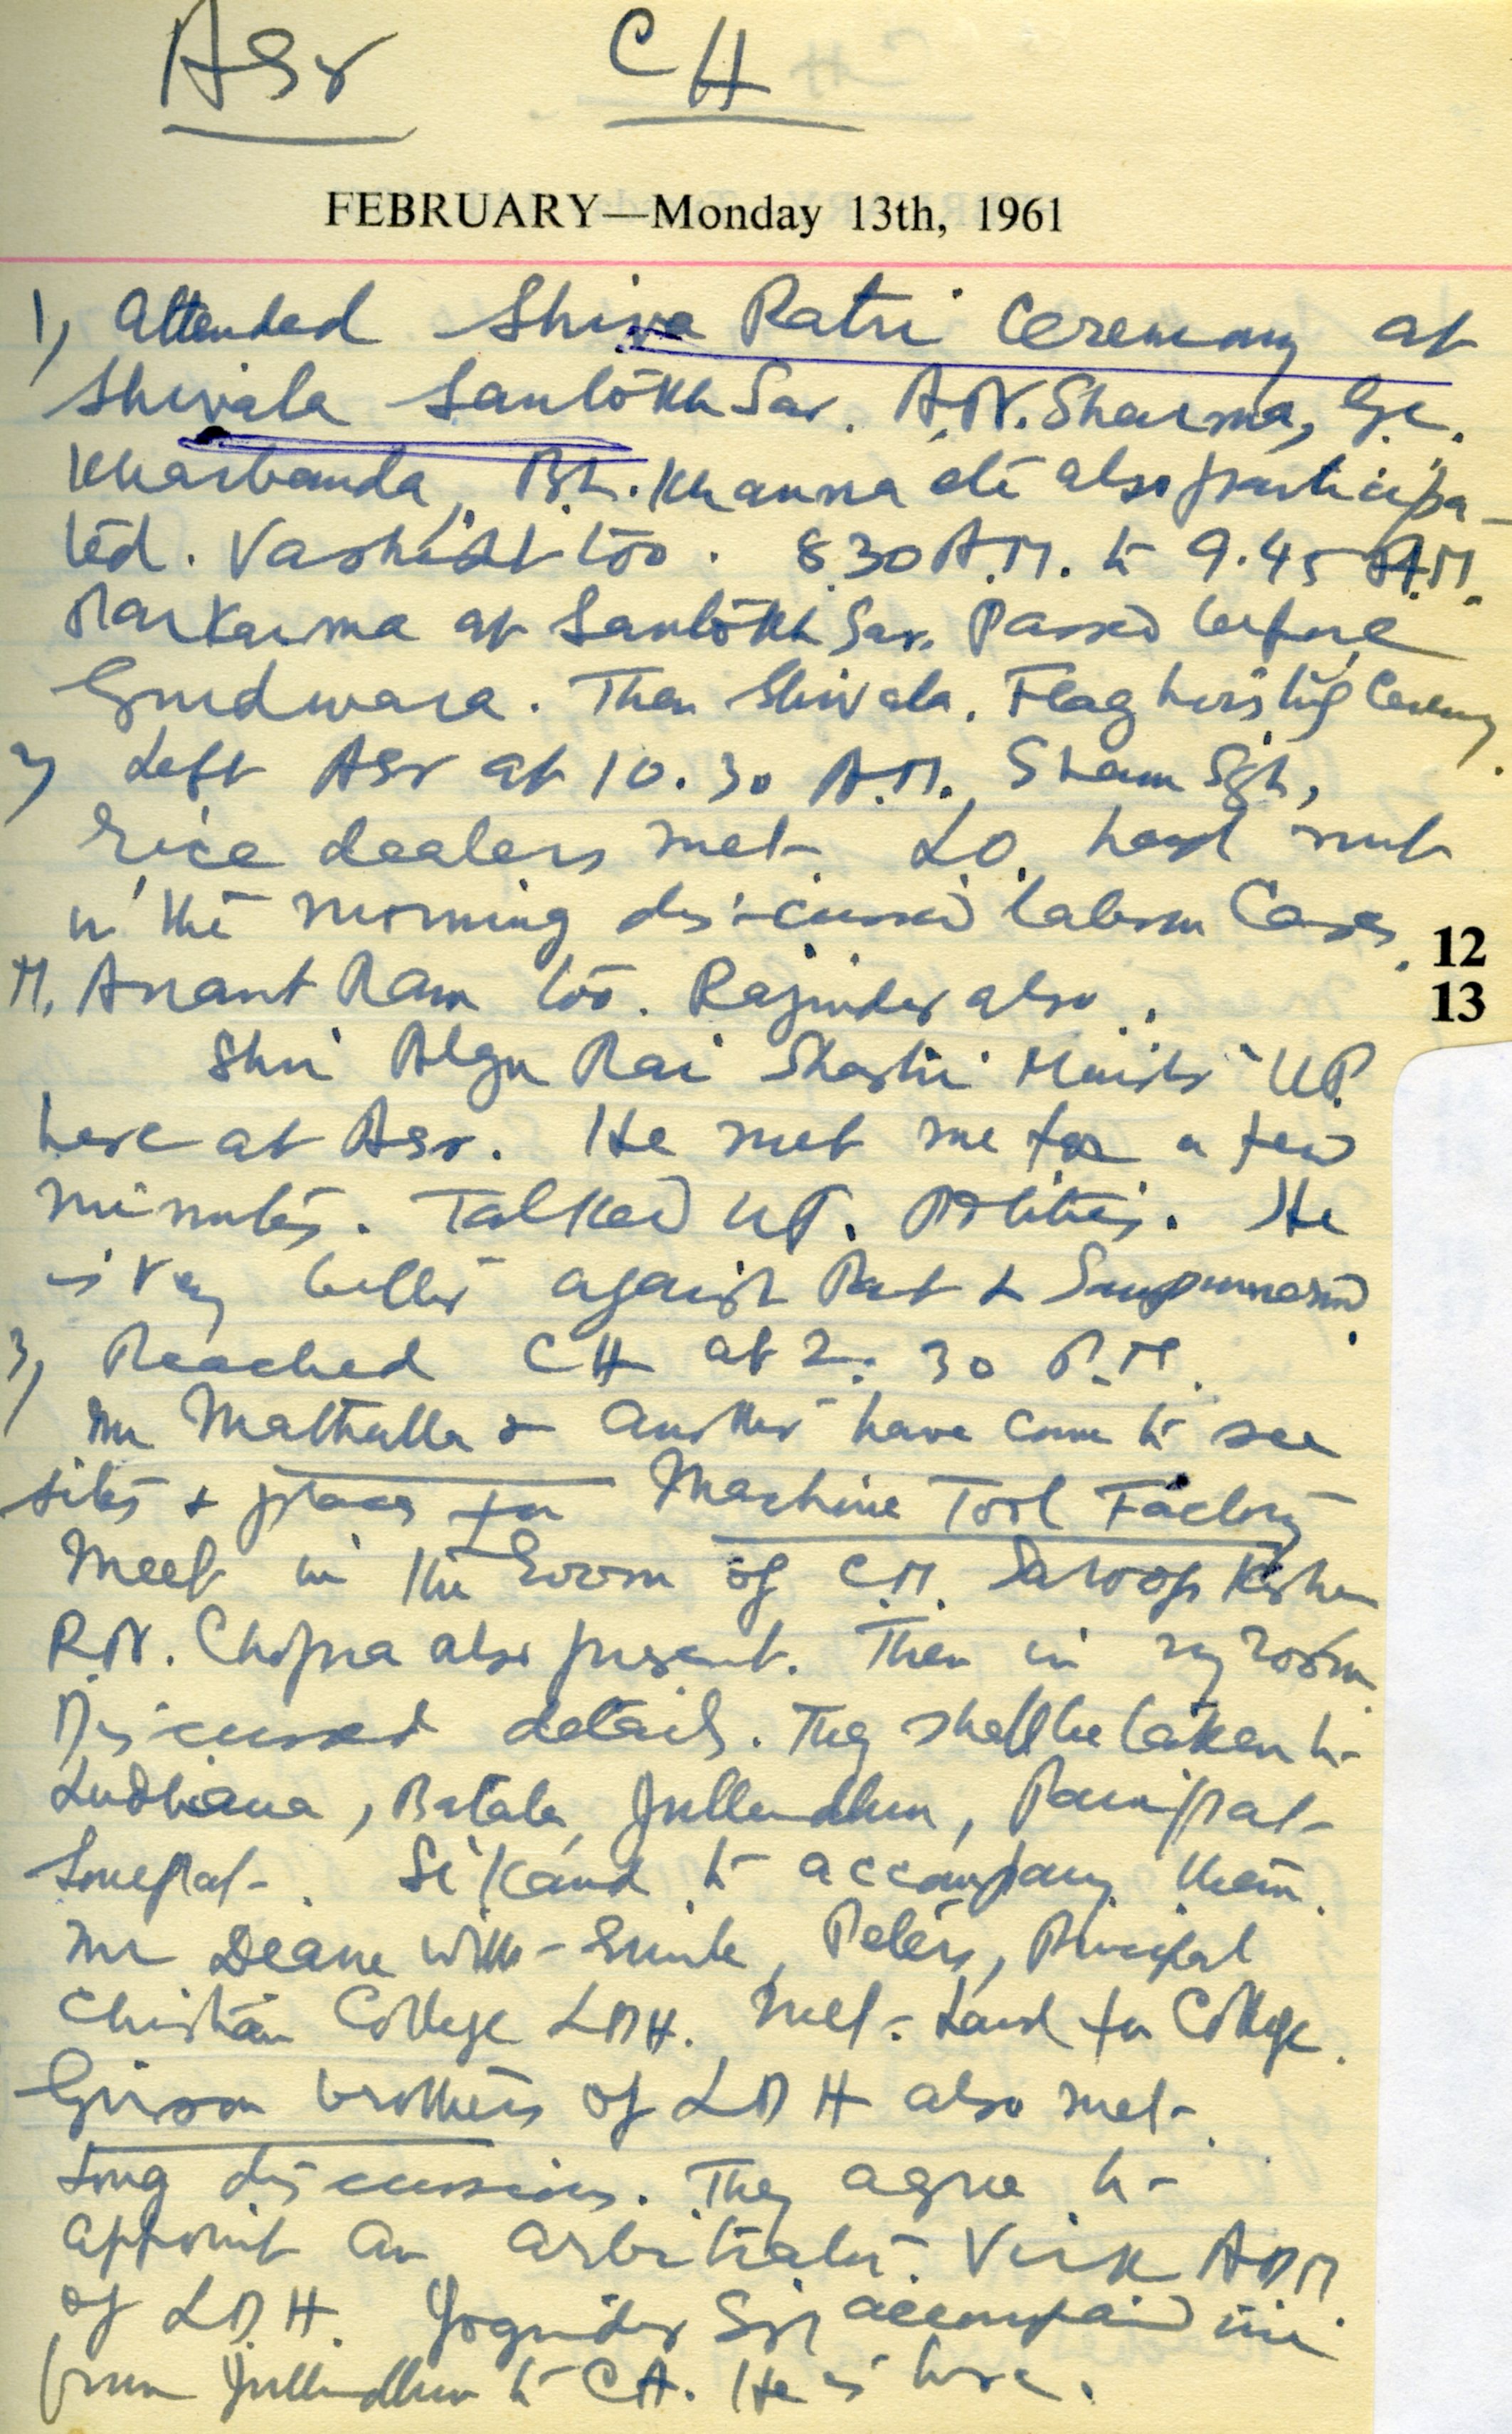 ASr CH
FEBRUARY—Monday 13th, 1961
1) Attended Shiva Ratri Ceremony at
Shivala Santokh Sar. A.N. Sharma, G.C.
Kharbanda, B.L. Khanna etc also participa-
ted. Vashisht too. 8.30 A.M. to 9.45 A.M.
at Santokh Sar. Passed before
Gurdwara. Then Shivala. Flag hoisting Ceremony.
2) Left ASr at 10.30 A.M. Sham Sgh,
rice dealers met. L.O. had met
in the morning discussed labour Cases.
M. Anant Ram too. Rajinder also.
Shri Algu Rai Shastri Minister U.P.
here at ASr. He met me for a few
minutes. Talked U.P. Politics. He
is very bitter against Pant &
3) Reached CH at 2.30 P.M.
Mr Matthulla & another have come to see
sites & places for Machine Tool Factory
Meet in the room of C.M. Saroop Krishen
R.N. Chopra also present. Then in my room
Discussed details. They shall be taken to
Ludhiana, Batala, Jullundhur, Panipat
Sonepat. Sikand to accompany them.
Mr Deane, Peters, Principal
Christian College LDH. Met. Land for College.
brothers of LDH also met.
Long discussions. They agree to
appoint an arbitrator. Virk ADM
of LDH. Joginder Sgh accompanied me
from Jullundhur to CH. He is here.
12
13